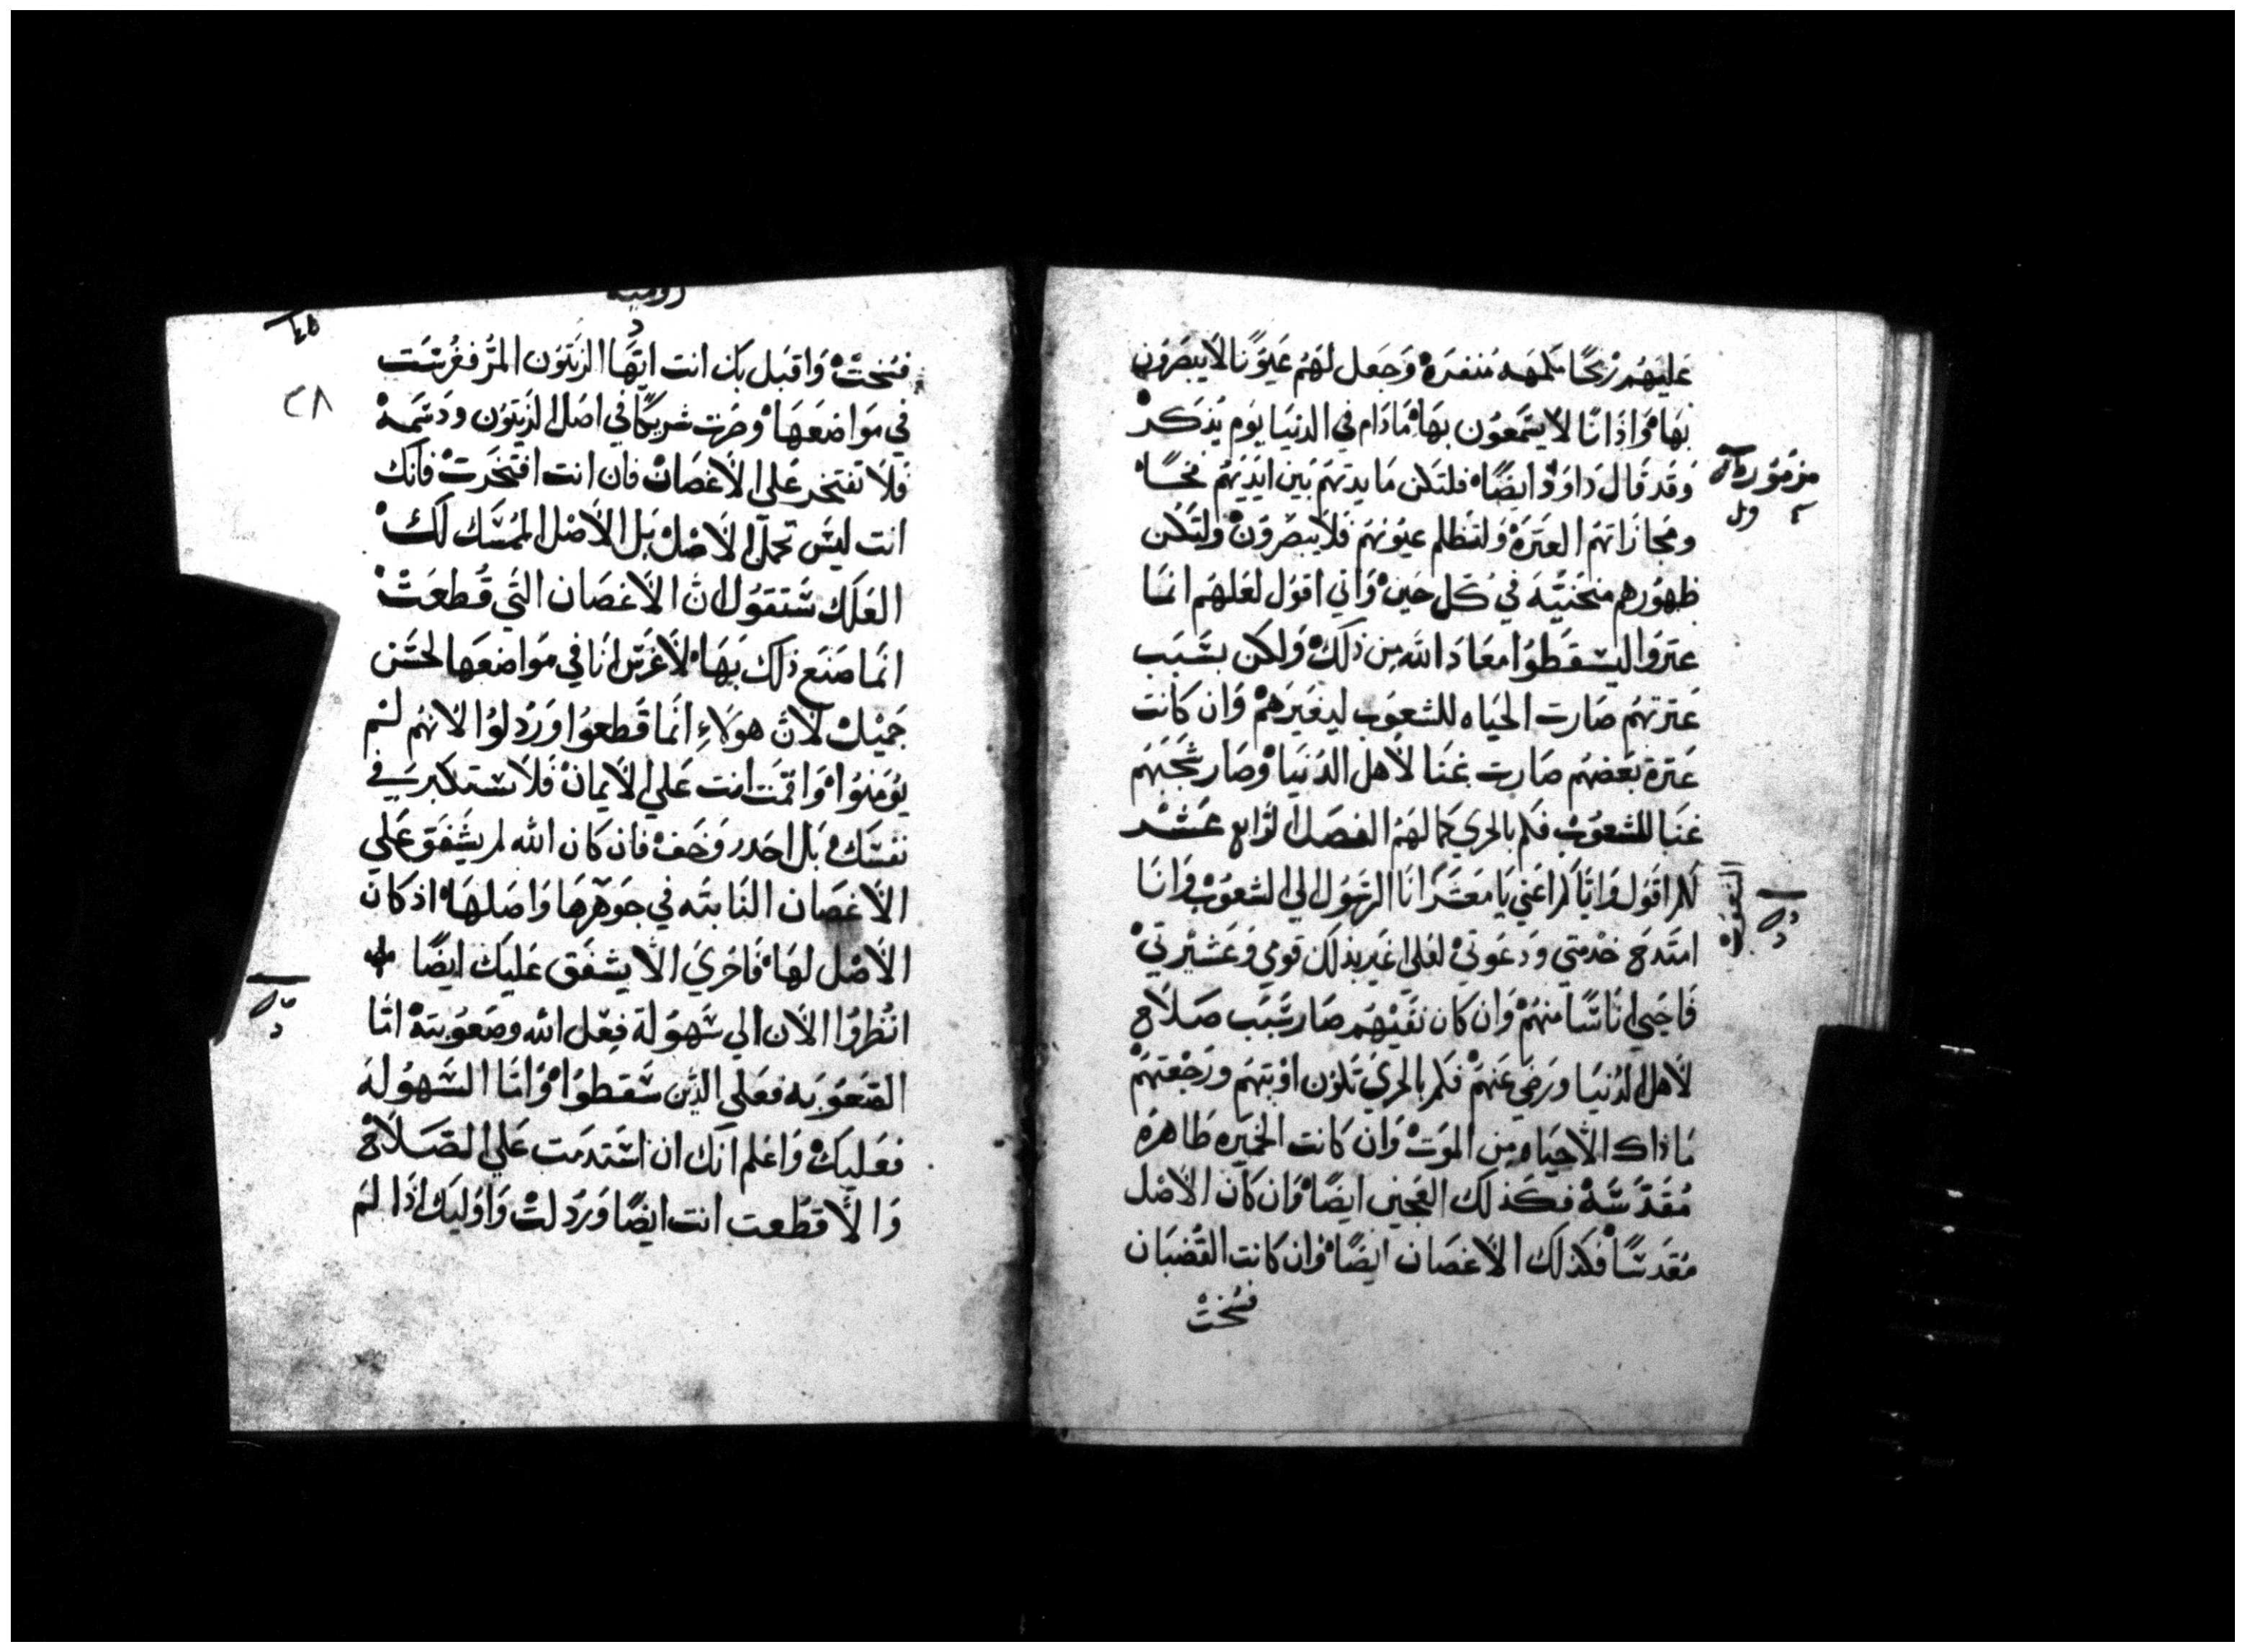 عَليهُم رُبحًا مَلهمه مُنفرَه وَجَعل لهُم عَيوُنًا لاَ يبصَرون
بهَا وَاذانًا لاَ يسَمعوُن بهَا مَادَام في الدنيَا يَوم يَذكر
وَقد قَال دَاوود ايضًا فلتكن مَايدتهَم بَين ايَديَهم فخًا
ومجازَاتهَم العَترَه وَلتظلم عيُونهَم فَلا يبَصرَون وَلتكُن
ظهوُرهم منحَنيَه في كَل حَين وَاني اقول لعَلهم انمَا
عترَوا ليسَقطوُا معَادَ الله مِن ذلك وَلكن بسَبَب
عَترتهُم صَارت الحيَاه للشعوَب ليغيَرهم وَان كانت
عَترة بَعضهُم صَارت غنَا لاهَل الدنيَا وَصَار شجَبَهم
غنَا للشعوُب فكم بالحري كمَالهَم الفصَل الرابع عَشر
لكم اقَول وَايَاكم اعَني يَا مَعشر انَا الرسَول الي الشعوُب وَانَا
امتدح خدمتي ودَعَوتي لعَلي اغير بذلك قومي وَعَشيرتي
فَاحَيي انَاسًا منهُم وَان كان نفَيهُم صَار سَبَب صَلاح
لاهَل الدنيَا ورَضي عَنهم فكم بالحري تكون اوبتهَم ورَجعَتهَم
مَا ذاك الا حيَاه مِن الموَت وَان كانت الخميَره طَاهره
مُقدسَه فكَذلك العَجين ايضًا وَان كَان الاصَل
مقدسًا فكذلك الاغصَان ايضًا وَان كانت القضبَان
فسُخت
مزمُور
الشعوب
رومية
٢٨
فسُخت وَاقبَل بك انت ايهَا الزيتوُن المر فغرسَت
في موَاضعهَا وصَرت شريكًا في اصَل الزيتوُن ودَسمه
فلاَ تفتخر عَلي الاغصَان فان انت افتخرت فانك
انت ليسَ تحمل الاصَل بَل الاصَل الممسَك لك
العَلك ستقوُل ان الاغصَان التي قُطعَت
انمَا صَنع ذلك بهَا لاغرَس انَا في مَواضعَها لحسَن
جَميل لان هوَلاء انما قَطعوُا وَرُدلوُا لانهُم لم
يوُمنوُا وَاقمت انت عَلي الايمَان فَلا تستكبر في
نفسَك بَل احَدر وَخَف فان كان الله لم يشَفق عَلي
الاغصَان النَابته في جوَهرهَا وَاصَلهَا اذ كان
الاصَل لهَا فاحري الا يشفق عَليك ايضًا
انظروُا الان الي سَهوُلة فِعل الله وصَعوُبته امَا
الصَعوُبه فعَلي الذين سَقطوُا وَامَا السَهوُله
فعَليك وَاعَلم انك ان استدمَت عَلي الصَلاح
وَالا قطعت انت ايضًا وَرُدلت وَاوليك اذا لم